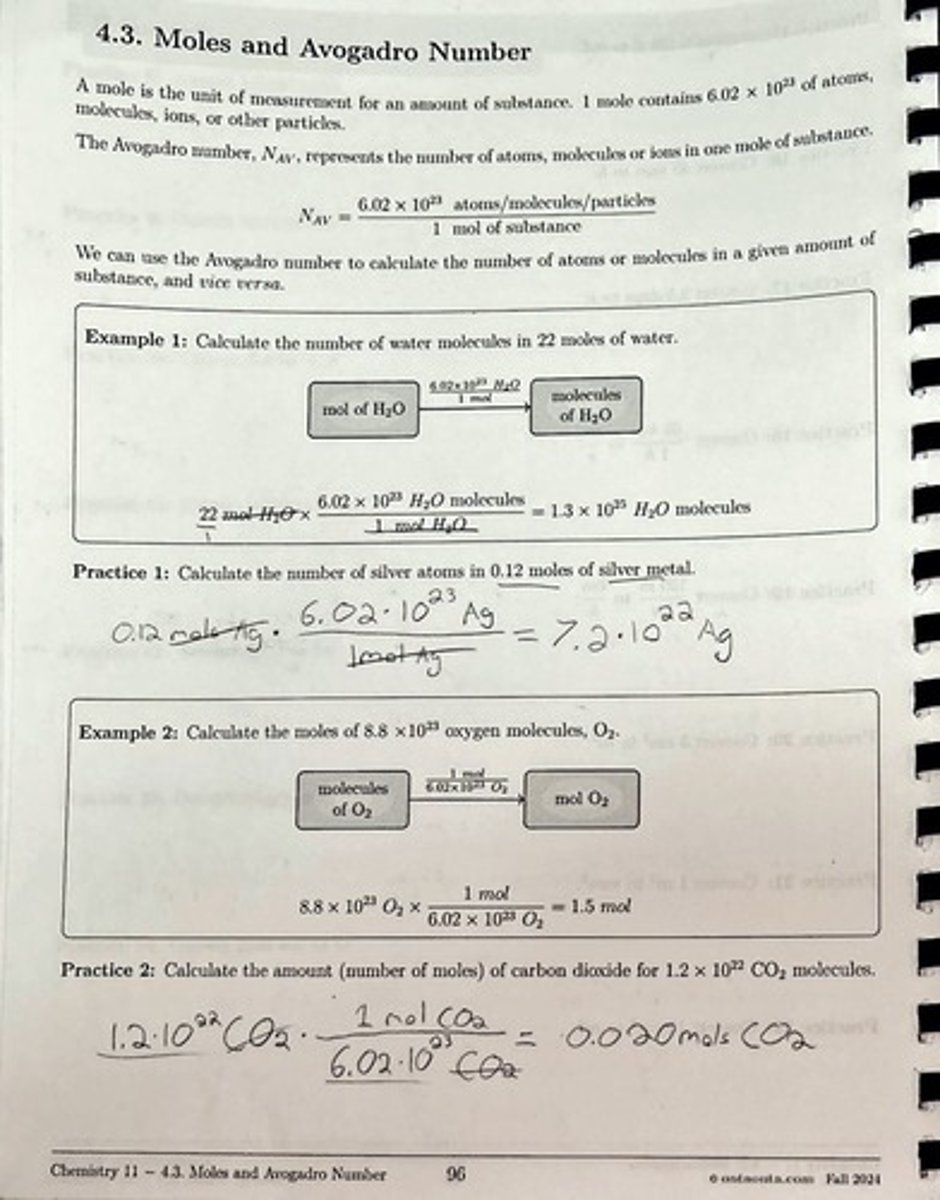 4.3. Moles and Avogadro Number
A mole is the unit of measurement for an amount of substance. 1 mole contains 6.02 × 10²³ of atoms,
molecules, ions, or other particles.
The Avogadro number, N_AV, represents the number of atoms, molecules or ions in one mole of substance.
N_AV = 6.02 × 10²³ atoms/molecules/particles / 1 mol of substance
We can use the Avogadro number to calculate the number of atoms or molecules in a given amount of
substance, and vice versa.
Example 1: Calculate the number of water molecules in 22 moles of water.
mol of H₂O 6.02×10²³ H₂O / 1 mol molecules of H₂O
22 mol H₂O × 6.02 × 10²³ H₂O molecules / 1 mol H₂O = 1.3 × 10²⁵ H₂O molecules
Practice 1: Calculate the number of silver atoms in 0.12 moles of silver metal.
0.12 mole Ag · 6.02·10²³ Ag / 1mol Ag = 7.2·10²² Ag
Example 2: Calculate the moles of 8.8 ×10²³ oxygen molecules, O₂.
molecules of O₂ 1 mol / 6.02×10²³ O₂ mol O₂
8.8 × 10²³ O₂ × 1 mol / 6.02 × 10²³ O₂ = 1.5 mol
Practice 2: Calculate the amount (number of moles) of carbon dioxide for 1.2 × 10²² CO₂ molecules.
1.2·10²² CO₂ · 1 mol CO₂ / 6.02·10²³ CO₂ = 0.020 mols CO₂
Chemistry 11 – 4.3. Moles and Avogadro Number 96 Fall 2024